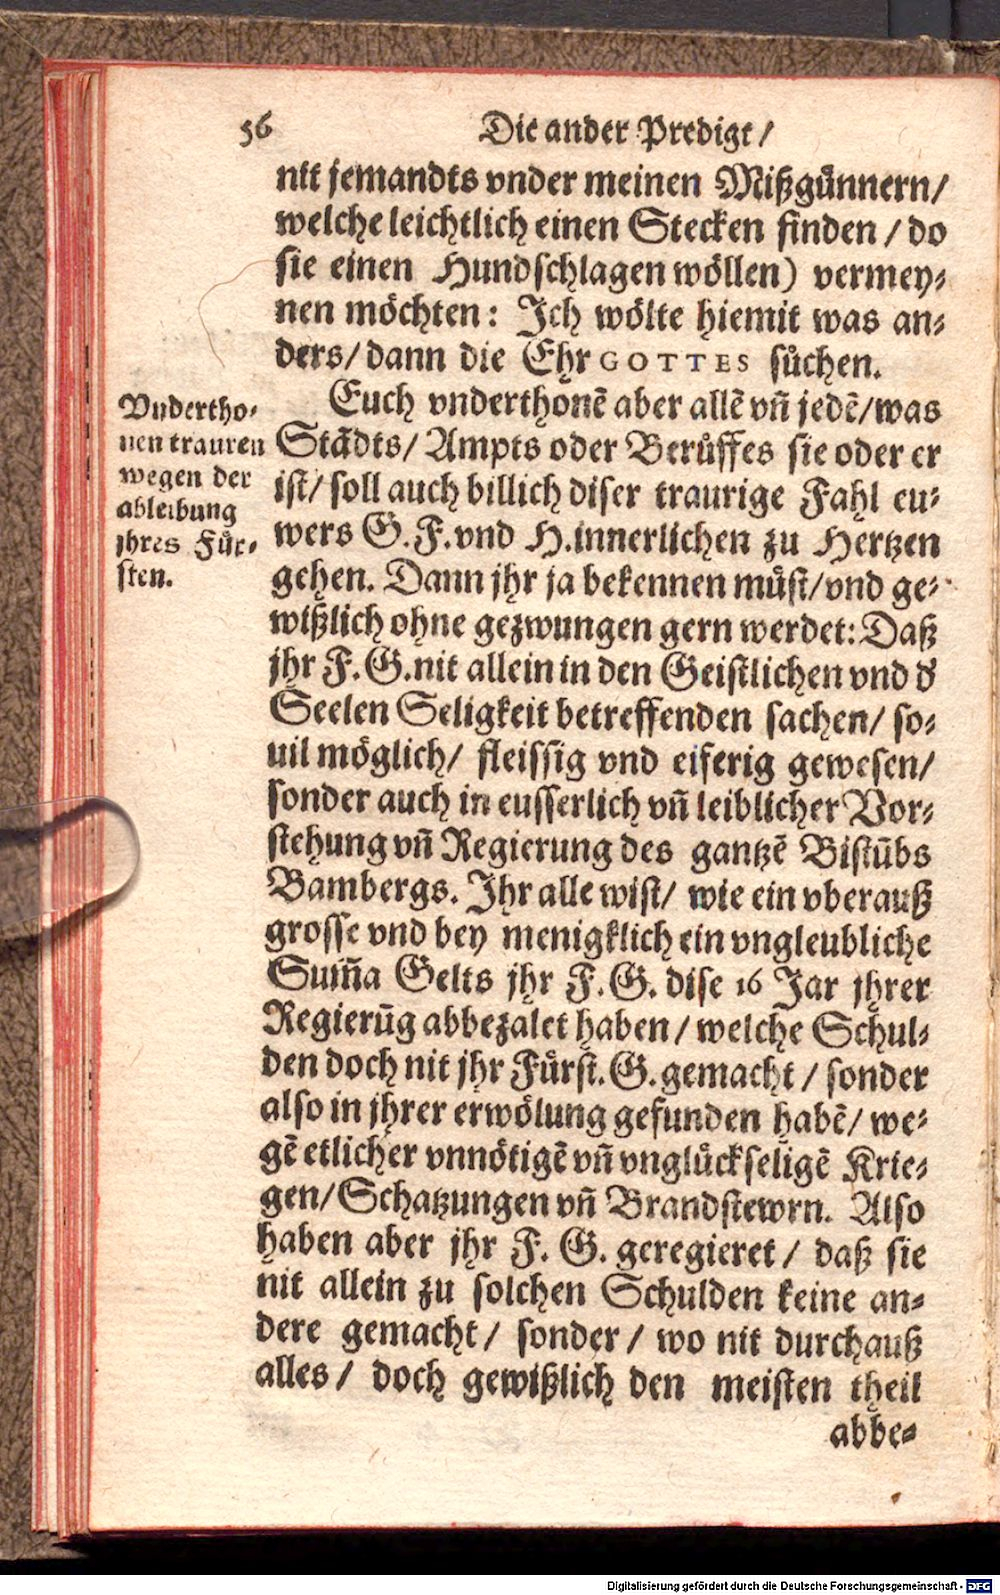 56
Die ander Predigt /
nit jemandts vnder meinen Mißgünnern/
welche leichtlich einen Stecken finden / do
sie einen Hundschlagen wöllen) vermey-
nen möchten: Ich wölte hiemit was an-
ders/ dann die Ehr GOTTES sůchen.
Vndertho-
nen trauren
wegen der
ableibung
jhres Für-
sten.
Euch vnderthonē aber allē vn̄ jedē/was
Stādts/ Ampts oder Berůffes sie oder er
ist/ soll auch billich diser traurige Fahl eu-
wers G. F. vnd H. innerlichen zu Hertzen
gehen. Dann jhr ja bekennen müst/ vnd ge-
wißlich ohne gezwungen gern werdet: Daß
jhr F. G. nit allein in den Geistlichen vnd d'
Seelen Seligkeit betreffenden sachen/ so-
uil möglich/ fleissig vnd eiferig gewesen/
sonder auch in eusserlich vn̄ leiblicher Vor-
stehung vn̄ Regierung des gantzē Bistūbs
Bambergs. Ihr alle wist/ wie ein vberauß
grosse vnd bey menigklich ein vngleubliche
Sum̄a Gelts jhr F. G. dise 16 Jar jhrer
Regierūg abbezalet haben / welche Schul-
den doch nit jhr Fürst. G. gemacht / sonder
also in jhrer erwölung gefunden habē/ we-
gē etlicher vnnötigē vn̄ vnglückseligē Krie-
gen/ Schatzungen vn̄ Brandstewrn. Also
haben aber jhr F. G. geregieret / daß sie
nit allein zu solchen Schulden keine an-
dere gemacht / sonder / wo nit durchauß
alles / doch gewißlich den meisten theil
abbe-
Digitalisierung gefördert durch die Deutsche Forschungsgemeinschaft - DFG